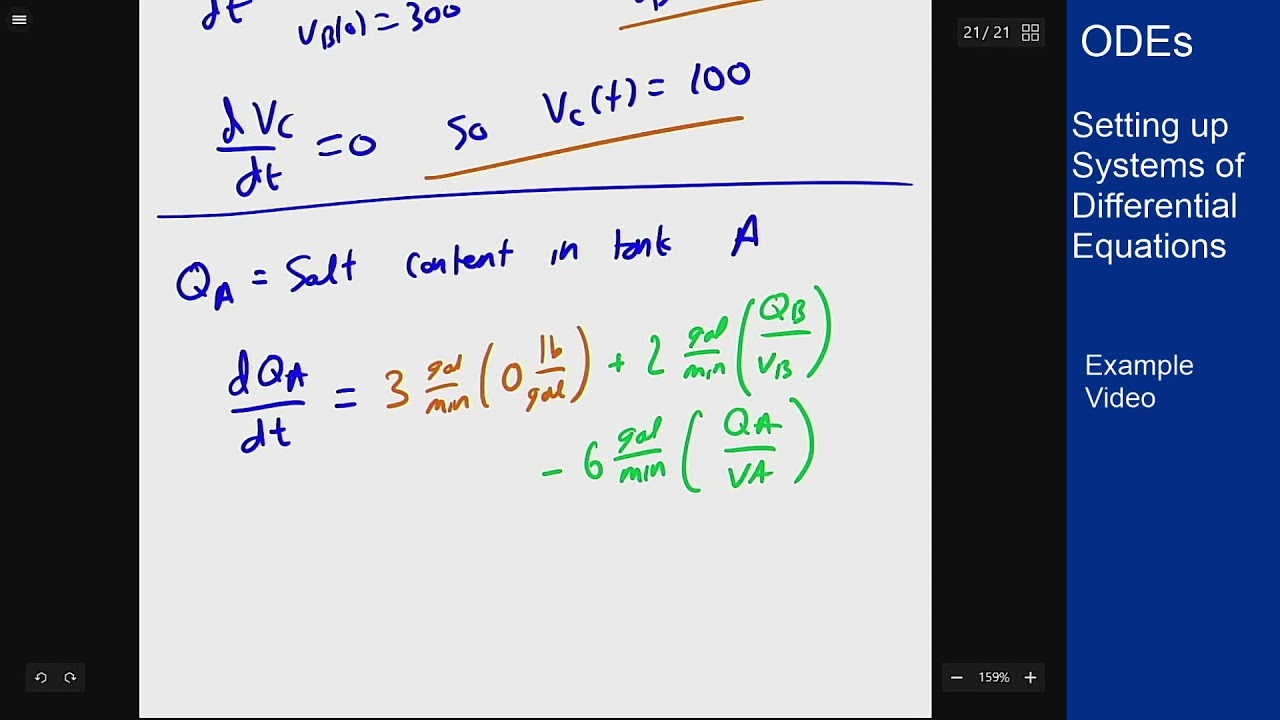 dt
V_B(0) = 300
dV_C/dt = 0 so V_C(t) = 100
Q_A = Salt content in tank A
dQ_A/dt = 3 gal/min (0 lb/gal) + 2 gal/min (Q_B/V_B)
- 6 gal/min (Q_A/V_A)
21 / 21
159%
ODEs
Setting up
Systems of
Differential
Equations
Example
Video